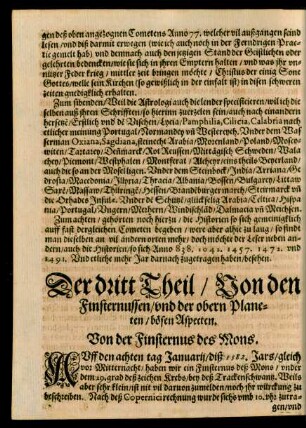 gen deß oben angezognen Cometens Anno 77. welcher vil außgangen seind
lesen / und diß darmit erwegen (wie ich auch noch in der Ferndrigen Prac-
tic gemelt hab) und dennoch auch den jetzigen Stand der Geistlichen oder
gelehrten bedencken / wie sie sich in ihren Emptern halten / und was jhr un-
nützer Feder krieg / mittler zeit bringen möchte / Christus der einig Sone
Gottes / wölle sein Kirchen (so gewißlich in der einfalt ist) in disen schweren
zeiten gnedigklich erhalten.
Zum sibenden / Weil die Astrologi auch die lender specificieren / wil ich die
selben auß ihren Schrifften / so hierinn zuerzelen sein / auch nach einander
hersetzē. Erstlich und de Visschen / Lycia / Pamphilia, Cilicia, Calabria nach
etlicher meinung Portugal / Normandey uñ Westereych. Under dem Waß
serman Oxiana, Sagdiana, steinecht Arabia / Reutenland / Poland / Mosco-
witten / Tartarey / Dennmarck / Rot Reussen / Mittägisch Schweden / Wala
chey / Piemont / Westphalen / Montferat / Alchepreins theils Beyerland /
auch die so an der Mosel ligen. Under dem Steinbock / India / Arriana / Ge
drosia / Macedonia / Illyria, Thracia / Albania / Bossen / Bulgarey / Littaw
Saxē / Massaw / Thüringē / Hessen / Brandenburger march / Steirmarck uñ
die Orhades Insulæ. Under de Schützē / glückselig Arabia / Celtica / Hispa
nia / Portugal / Ungern / Merhern / Windischlād / Dalmatia uñ Metzhen.
Zum achten / gehörten noch hier zu die Historien so sich gemeinigklich
auff fast dergleichen Cometen begeben / were aber alhie zu lang / so findt
man dieselben an vil andern orten mehr / doch möchte der Leser neben an-
dern, auch die Historien / so sich Anno 838. 1042. 1457. 1472. und
1491. Und etliche mehr Jar darnach zugetragen haben / besehen.
Der dritt Theil / Von den
Finsternussen / und der obern Plane-
ten / bösen Aspecten.
Von der Finsternus des Mons.
AUff den achten tag Januarij / diß 1582. Jars / gleich
vor Mitternacht / haben wir ein Finsternus deß Mons / under
dem 29. grad deß zeichen Krebs / bey deß Trackenschwantz. Weils
aber sehr klein / ist nit vil darvon zumelden noch jhr würckung zu
beschreiben. Nach deß Copernici rechnung wurde sichs umb 10. vhr zutra-
gen / und